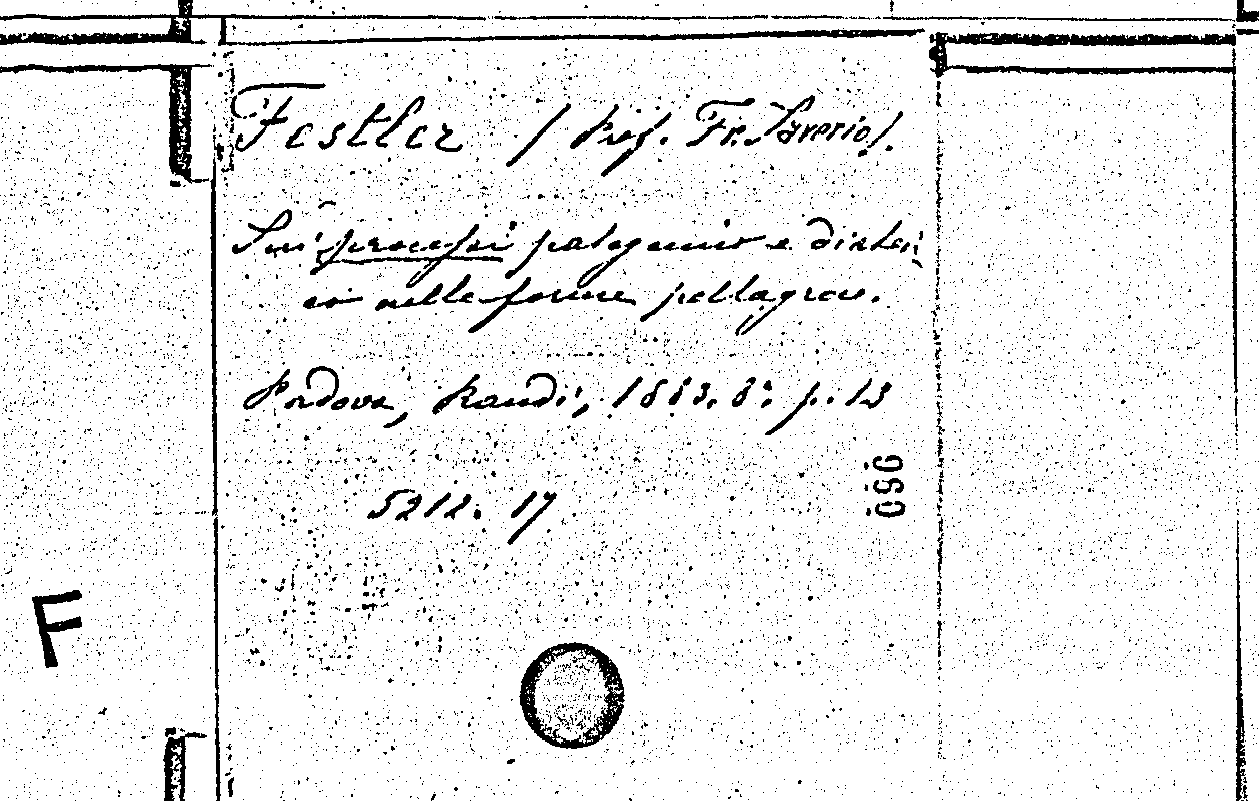 Festler / Prof. Fr. Saverio /.
Sui processi patogenico e diste-
co nelle forme pellagrose.
Padova, Randi, 1883. 8°. p. 13
5212. 17
090
F